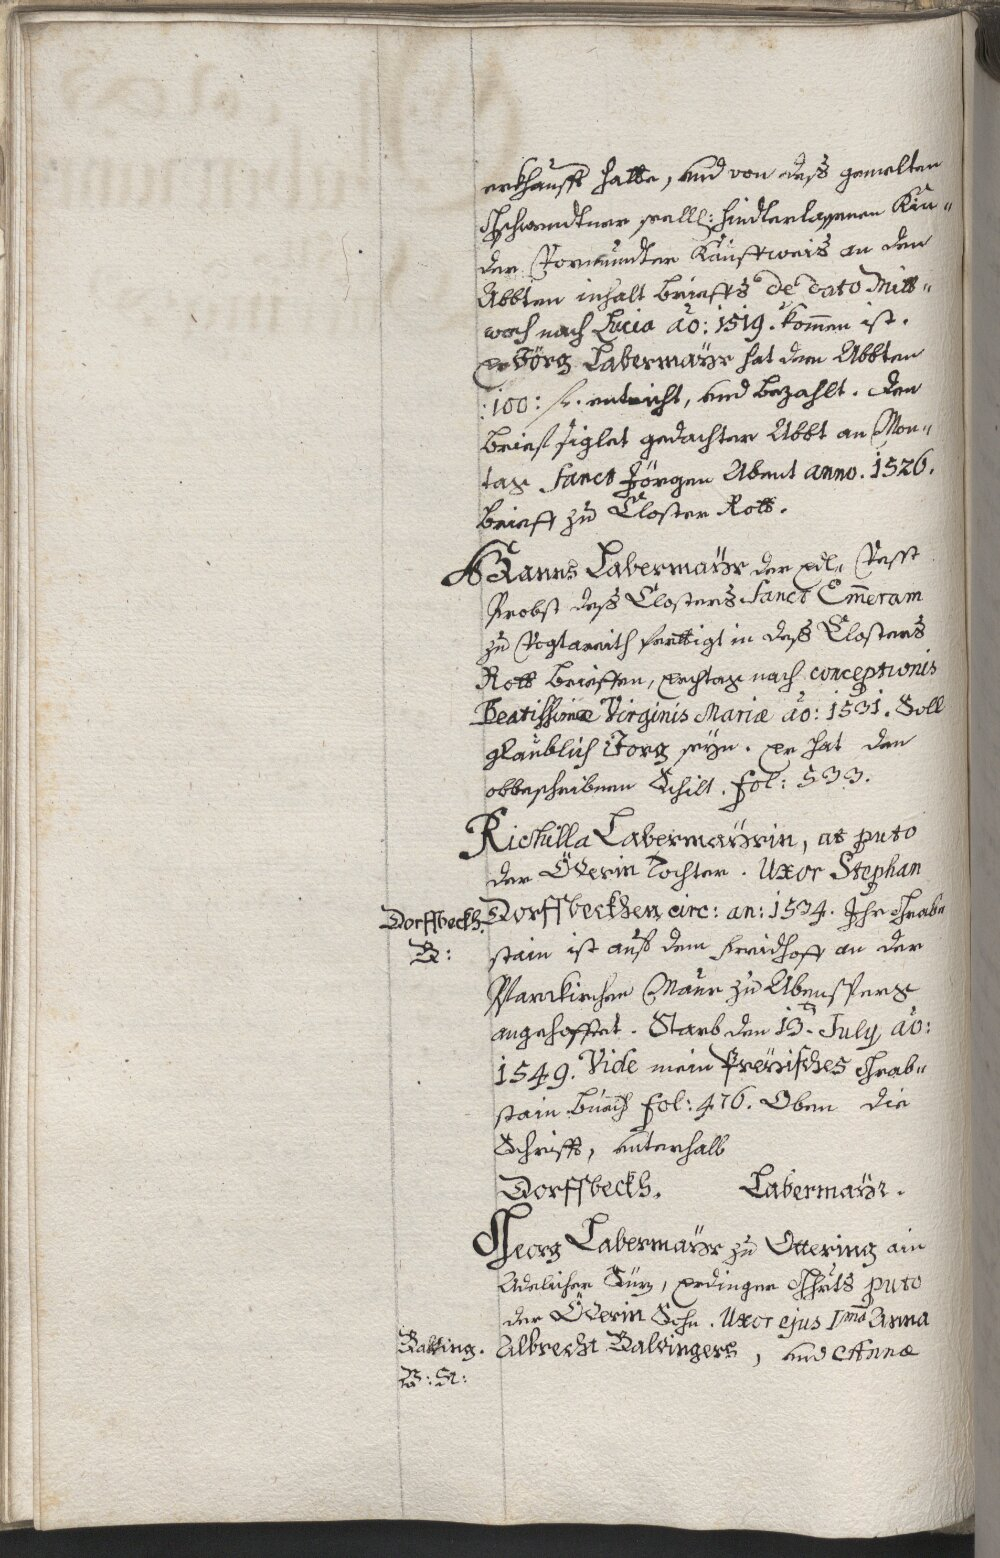 erkhaufft hatte, und von deß gemelten
Gschwendtner seelll: hinderlassenen Kin„
der Vormündter Kauffweis an den
Abbten inhalt brieffs de dato Mitt„
woch nach Lucia ao: 1519. kom̅en ist.
er Jörg Labermayr hat dem Abbten
:100: fl. entricht, und bezahlt. den
brieff siglet gedachter Abbt an Mon„
tag Sanct Jörgen Abent anno. 1526.
brieff zu Closter Rott.
Hanns Labermayr der edl„ Vesst
Probst deß Closters Sanct Em̅eram
zu Vogtareith fertigt in deß Closters
Rott brieffen, erchtag nach conceptionis
Beatissimæ Virginis Mariæ ao: 1531. Soll
glaublich Jorg seyn. er hat den
obbeschribnen Schilt. fol: 533.
Richilla Labermayrin, at puto
der Öderin Tochter. Uxor Stephan
Dorffbeckhen circ: an: 1534. Ihr Grab„
stain ist auß dem Freidhoff an der
Pfarrkirchen Maur zu Abensperg
angehefftet. Starb den 13. July ao:
1549. Vide mein Preyisches Grab„
stain buech fol: 476. Oben die
Schrifft, unterhalb
Dorffbeckh. Labermayr.
Georg Labermayr zu Ottering ain
Adelicher Sün, erdinger Ghrts puto
der Öderin Sohn. Uxor ejus Ima Anna
Albrecht Baldingers, und Annæ
Dorffbeckh.
B:
Balding.
B: A: